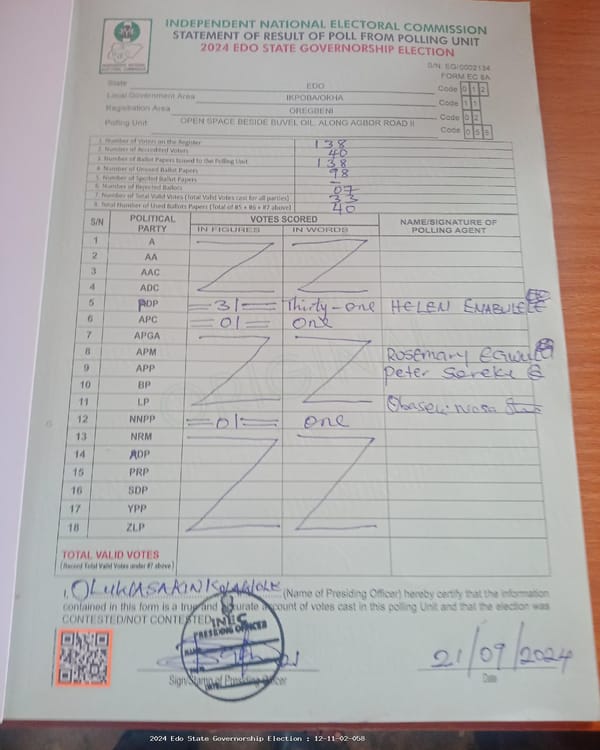 INDEPENDENT NATIONAL ELECTORAL COMMISSION
STATEMENT OF RESULT OF POLL FROM POLLING UNIT
2024 EDO STATE GOVERNORSHIP ELECTION
S/N: EG/0002134
FORM EC 8A
State EDO Code 0 1 2
Local Government Area IKPOBA/OKHA Code 1 1
Registration Area OREGBENI Code 0 2
Polling Unit OPEN SPACE BESIDE BUVEL OIL, ALONG AGBOR ROAD II Code 0 5 8
1. Number of Voters on the Register 138
2. Number of Accredited Voters 40
3. Number of Ballot Papers Issued to the Polling Unit 138
4. Number of Unused Ballot Papers 98
5. Number of Spoiled Ballot Papers –
6. Number of Rejected Ballots 07
7. Number of Total Valid Votes (Total Valid Votes cast for all parties) 33
8. Total Number of Used Ballots Papers (Total of #5 + #6 + #7 above) 40
S/N POLITICAL PARTY VOTES SCORED NAME/SIGNATURE OF POLLING AGENT
IN FIGURES IN WORDS
1 A
2 AA
3 AAC
4 ADC
5 PDP =31= Thirty-one HELEN ENABULELE
6 APC =01= One
7 APGA
8 APM Rosemary
9 APP Peter Sereki
10 BP
11 LP Obaseki
12 NNPP =01= one
13 NRM
14 ADP
15 PRP
16 SDP
17 YPP
18 ZLP
TOTAL VALID VOTES
(Record Total Valid Votes under #7 above)
I, (Name of Presiding Officer) hereby certify that the information
contained in this form is a true and accurate account of votes cast in this polling Unit and that the election was
CONTESTED/NOT CONTESTED.
INEC
PRESIDING OFFICER
21/09/2024
Sign/Stamp of Presiding Officer Date
2024 Edo State Governorship Election : 12-11-02-058